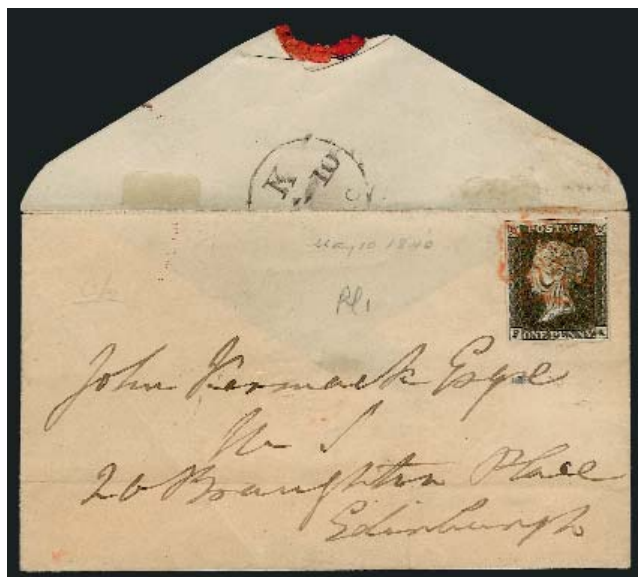 M
10
May 10 1840
Pl 1
POSTAGE
ONE PENNY
John Kermack Esqre
W S
20 Broughton Place
Edinburgh